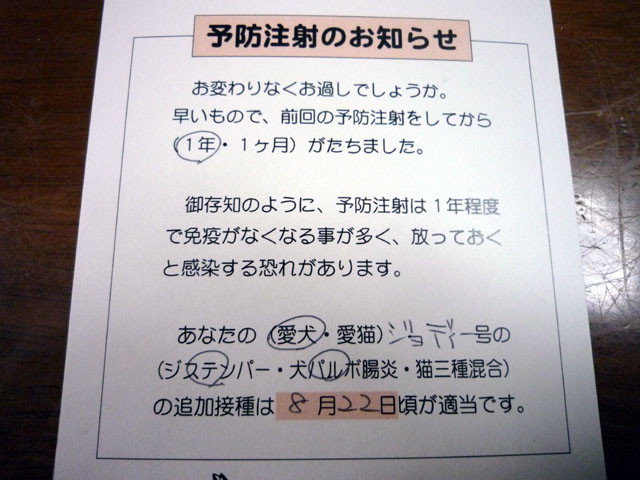 予防注射のお知らせ
お変わりなくお過しでしょうか。
早いもので、前回の予防注射をしてから
(1年・1ヶ月)がたちました。
御存知のように、予防注射は1年程度
で免疫がなくなる事が多く、放っておく
と感染する恐れがあります。
あなたの(愛犬・愛猫)ジョディー号の
(ジステンパー・犬パルボ腸炎・猫三種混合)
の追加接種は8月22日頃が適当です。